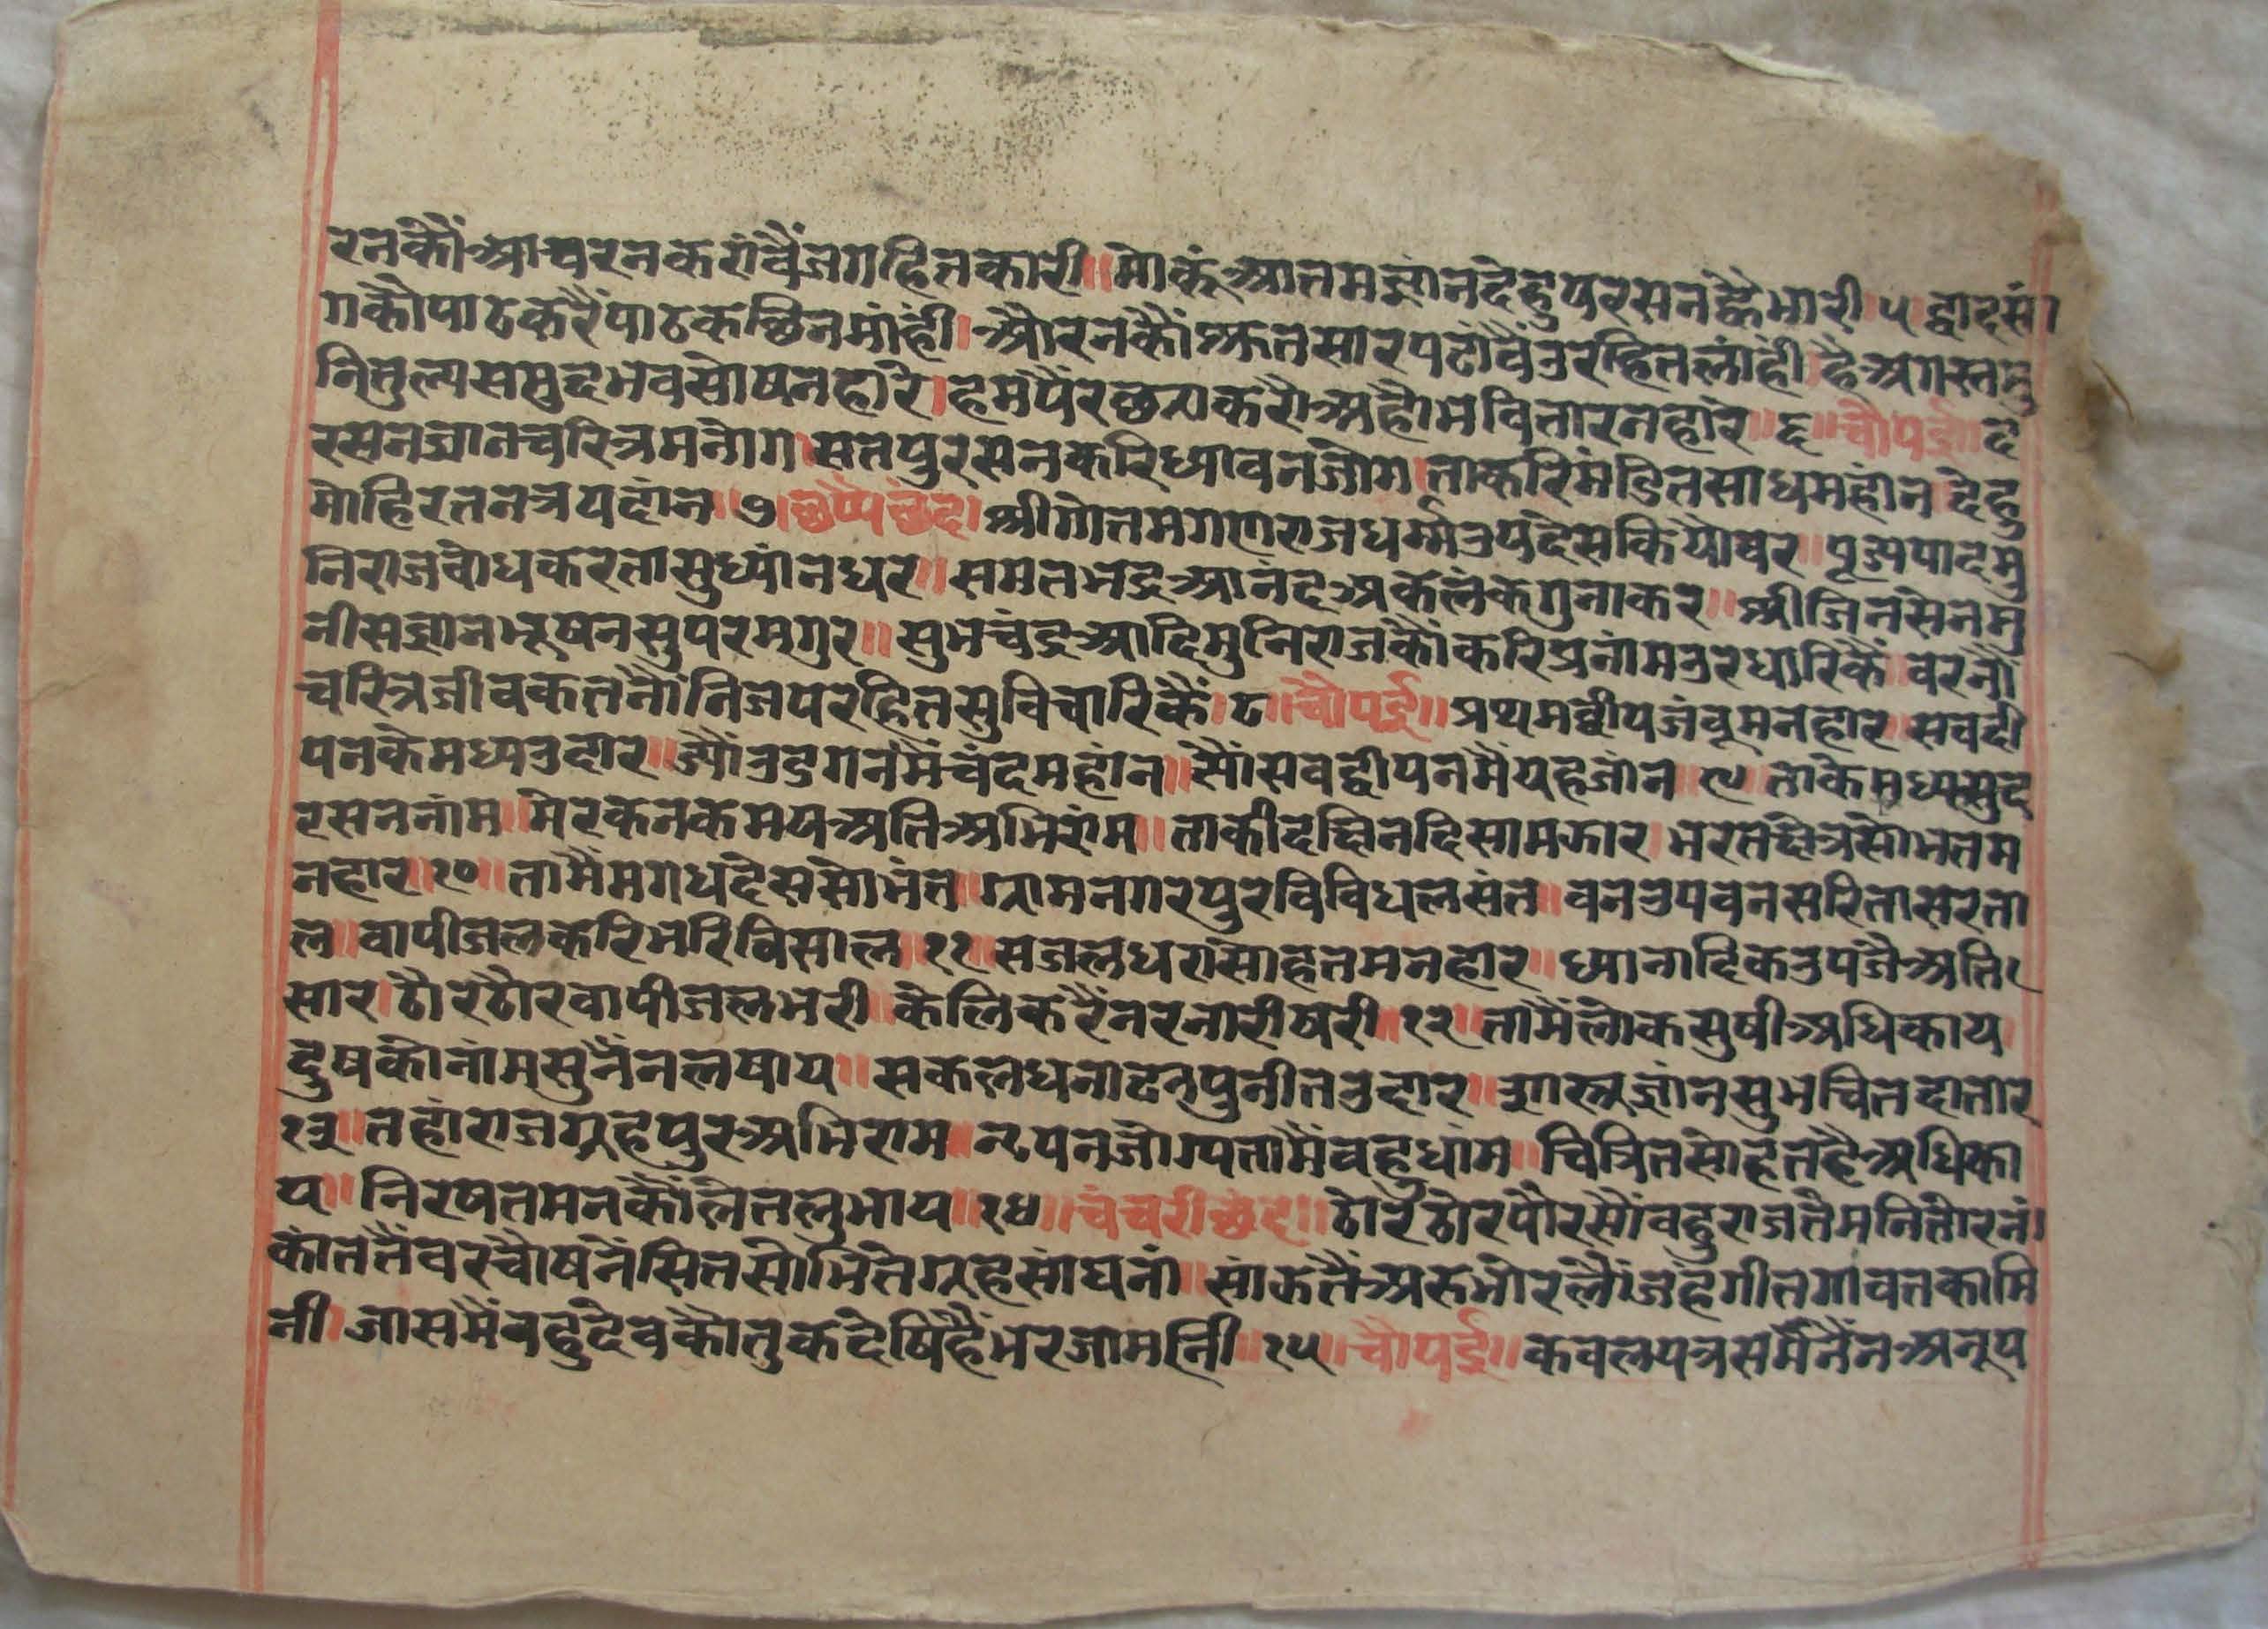 रनकौंआचरनकरांवैंजगहितकारी॥मोकूंआतमज्ञांनदेहुपरसनह्वैभारी॥५॥द्वादसां
गकौपाठकरैंपाठकछिनमांहीं।औरनकौंश्रुतसारपढांवैंउरहितलांहीं।हैअगस्तमु
नितुल्यसमुदभवसोषनहारे।हमपैंरछ्याकरौअहौभवितारनहारे॥६॥चौपई॥द
रसनज्ञानचरित्रमनोग।सतपुरसनकरिध्यावनजोग।ताकरिमंडितसाधमहांन।देहु
मोहिरतनत्रयदांन॥७॥छप्पैछंद।श्रीगोतमगणराजधर्म्मउपदेसकियौवर॥पूज्यपादमु
निराजवोधकरतासुध्यांनधर॥समतभद्रआनंदअकलंकगुनाकर॥श्रीजिनसेनमु
नीसज्ञानभूषनसुपरमगुर॥सुभचंद्रआदिमुनिराजकौंकरिप्रनांमउरधारिकैं॥वरनौं
चरित्रजीवकतनौंनिजपरहितसुविचारिकैं।८॥चौपई॥प्रथमद्वीपजंवूमनहार॥सवदी
पनकेमध्यउदार॥ज्यौंउडगनमैंचंदमहांन॥सौंसवद्वीपनमैंयहजांन॥९॥ताकेमध्यसुद
रसननांम॥मेरकनकमयअतिअभिरांम॥ताकीदछिनदिसामझार।भरतछेत्रसोभतम
नहार॥१०॥तामैंमगधदेससोभंत॥ग्रामनगरपुरविविधलसंत॥वनउपवनसरितासरता
ल॥वापीजलकरिभरिविसाल॥११॥सजलधरासोहतमनहार॥ध्यानादिकउपजैअति
सार।ठौरठौरवापीजलभरी॥केलिकरैंनरनारीषरी॥१२॥तामैंलोकसुषीअधिकाय।
दुषकौनांमसुनैंनलषाय॥सकलधनाढतपुनीतउदार॥गुरुज्ञांनसुभचितदातार
१३॥तहांराजग्रहपुरअभिराम॥नृपनजोग्यतामैंवहुधांम॥चित्रितसोहतहैअधिका
य॥निरषतमनकौंलेतलुभाय॥१४॥चंचरीछंद॥ठौरठौरपौरसौंवहुराजतेमनितोरनं।
कांततैंवरचौषनैंसितसोभितेग्रहसांघनां॥सांझतैंअरुभोरलौंजंहगीतगांवतकामि
नी॥जासमैंवहुदेवकौतुकदेषिहैंभरजामनी॥१५॥चौपई॥कवलपत्रसमनैंनअनूप